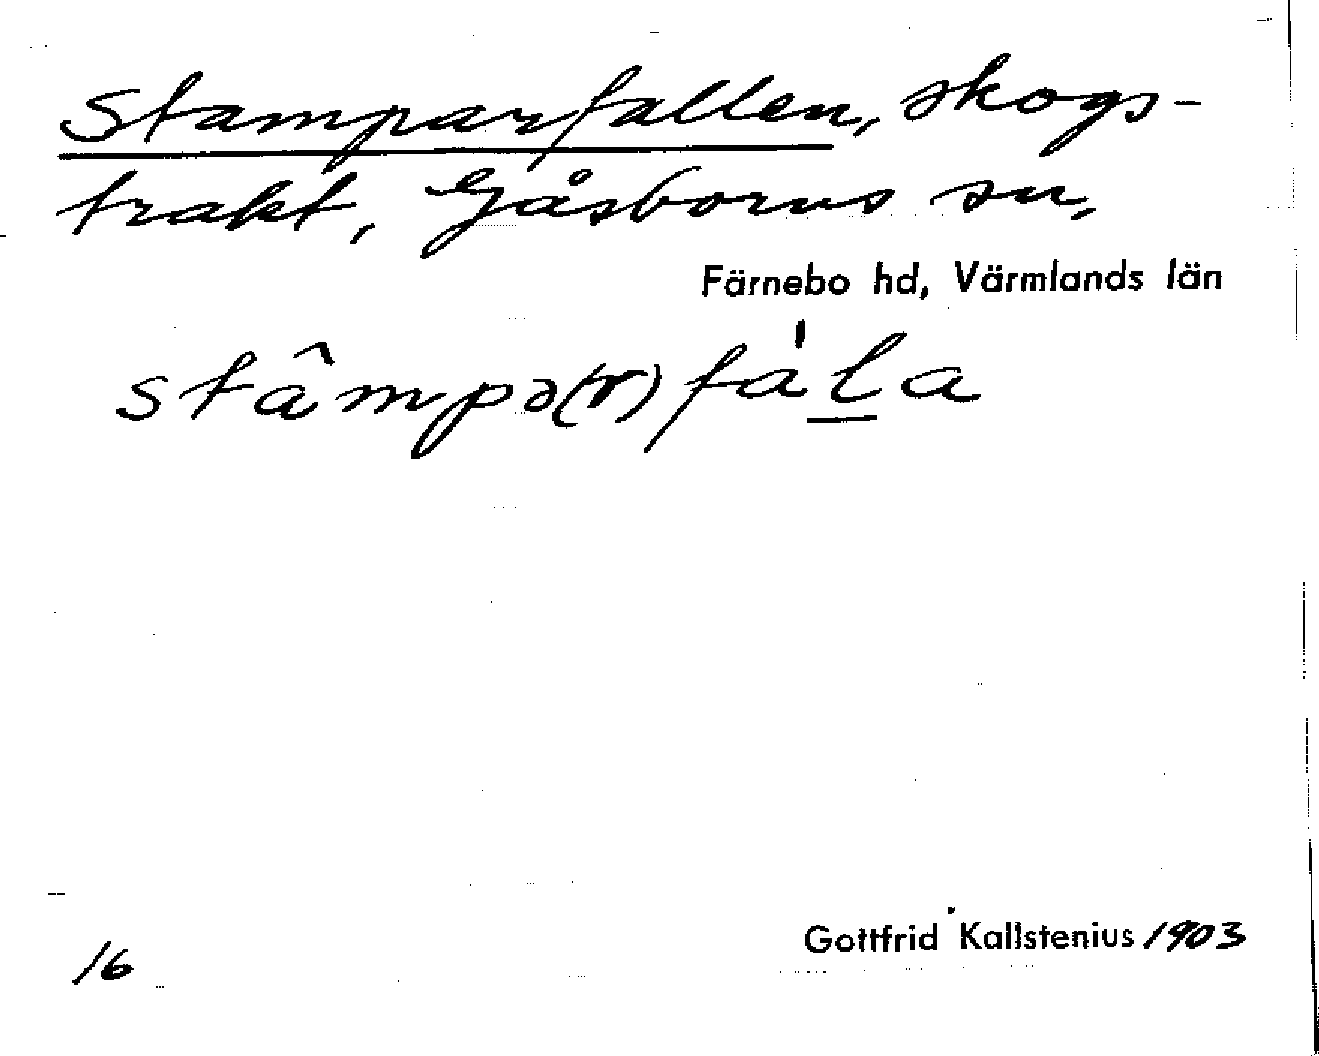 Stamparfallen, skogs-
trakt, Gåsborns sn,
Färnebo hd, Värmlands län
stâmpə(r)fàl̲a
Gottfrid Kallstenius 1903
16